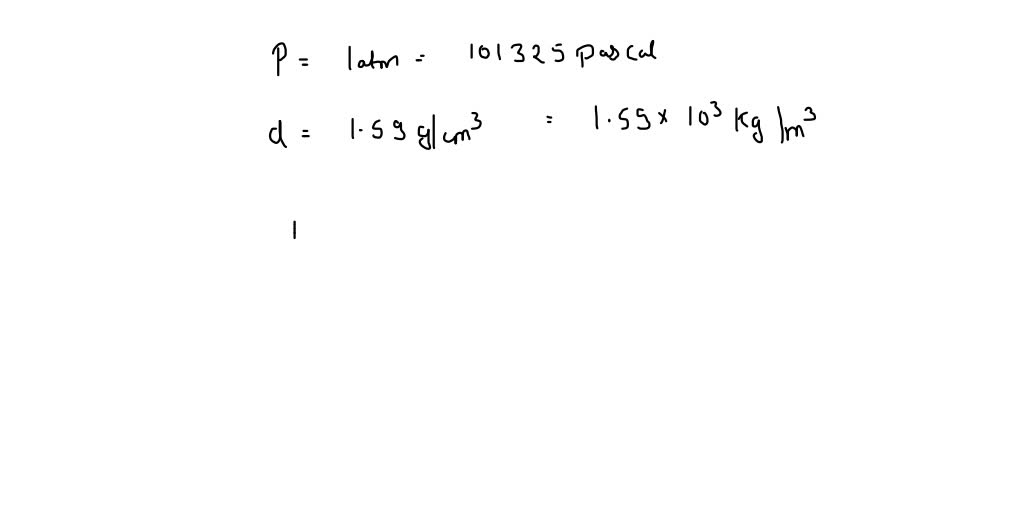 P = 1atm = 101325 pascal
d = 1.59 g/cm³ = 1.59 × 10³ kg/m³
1